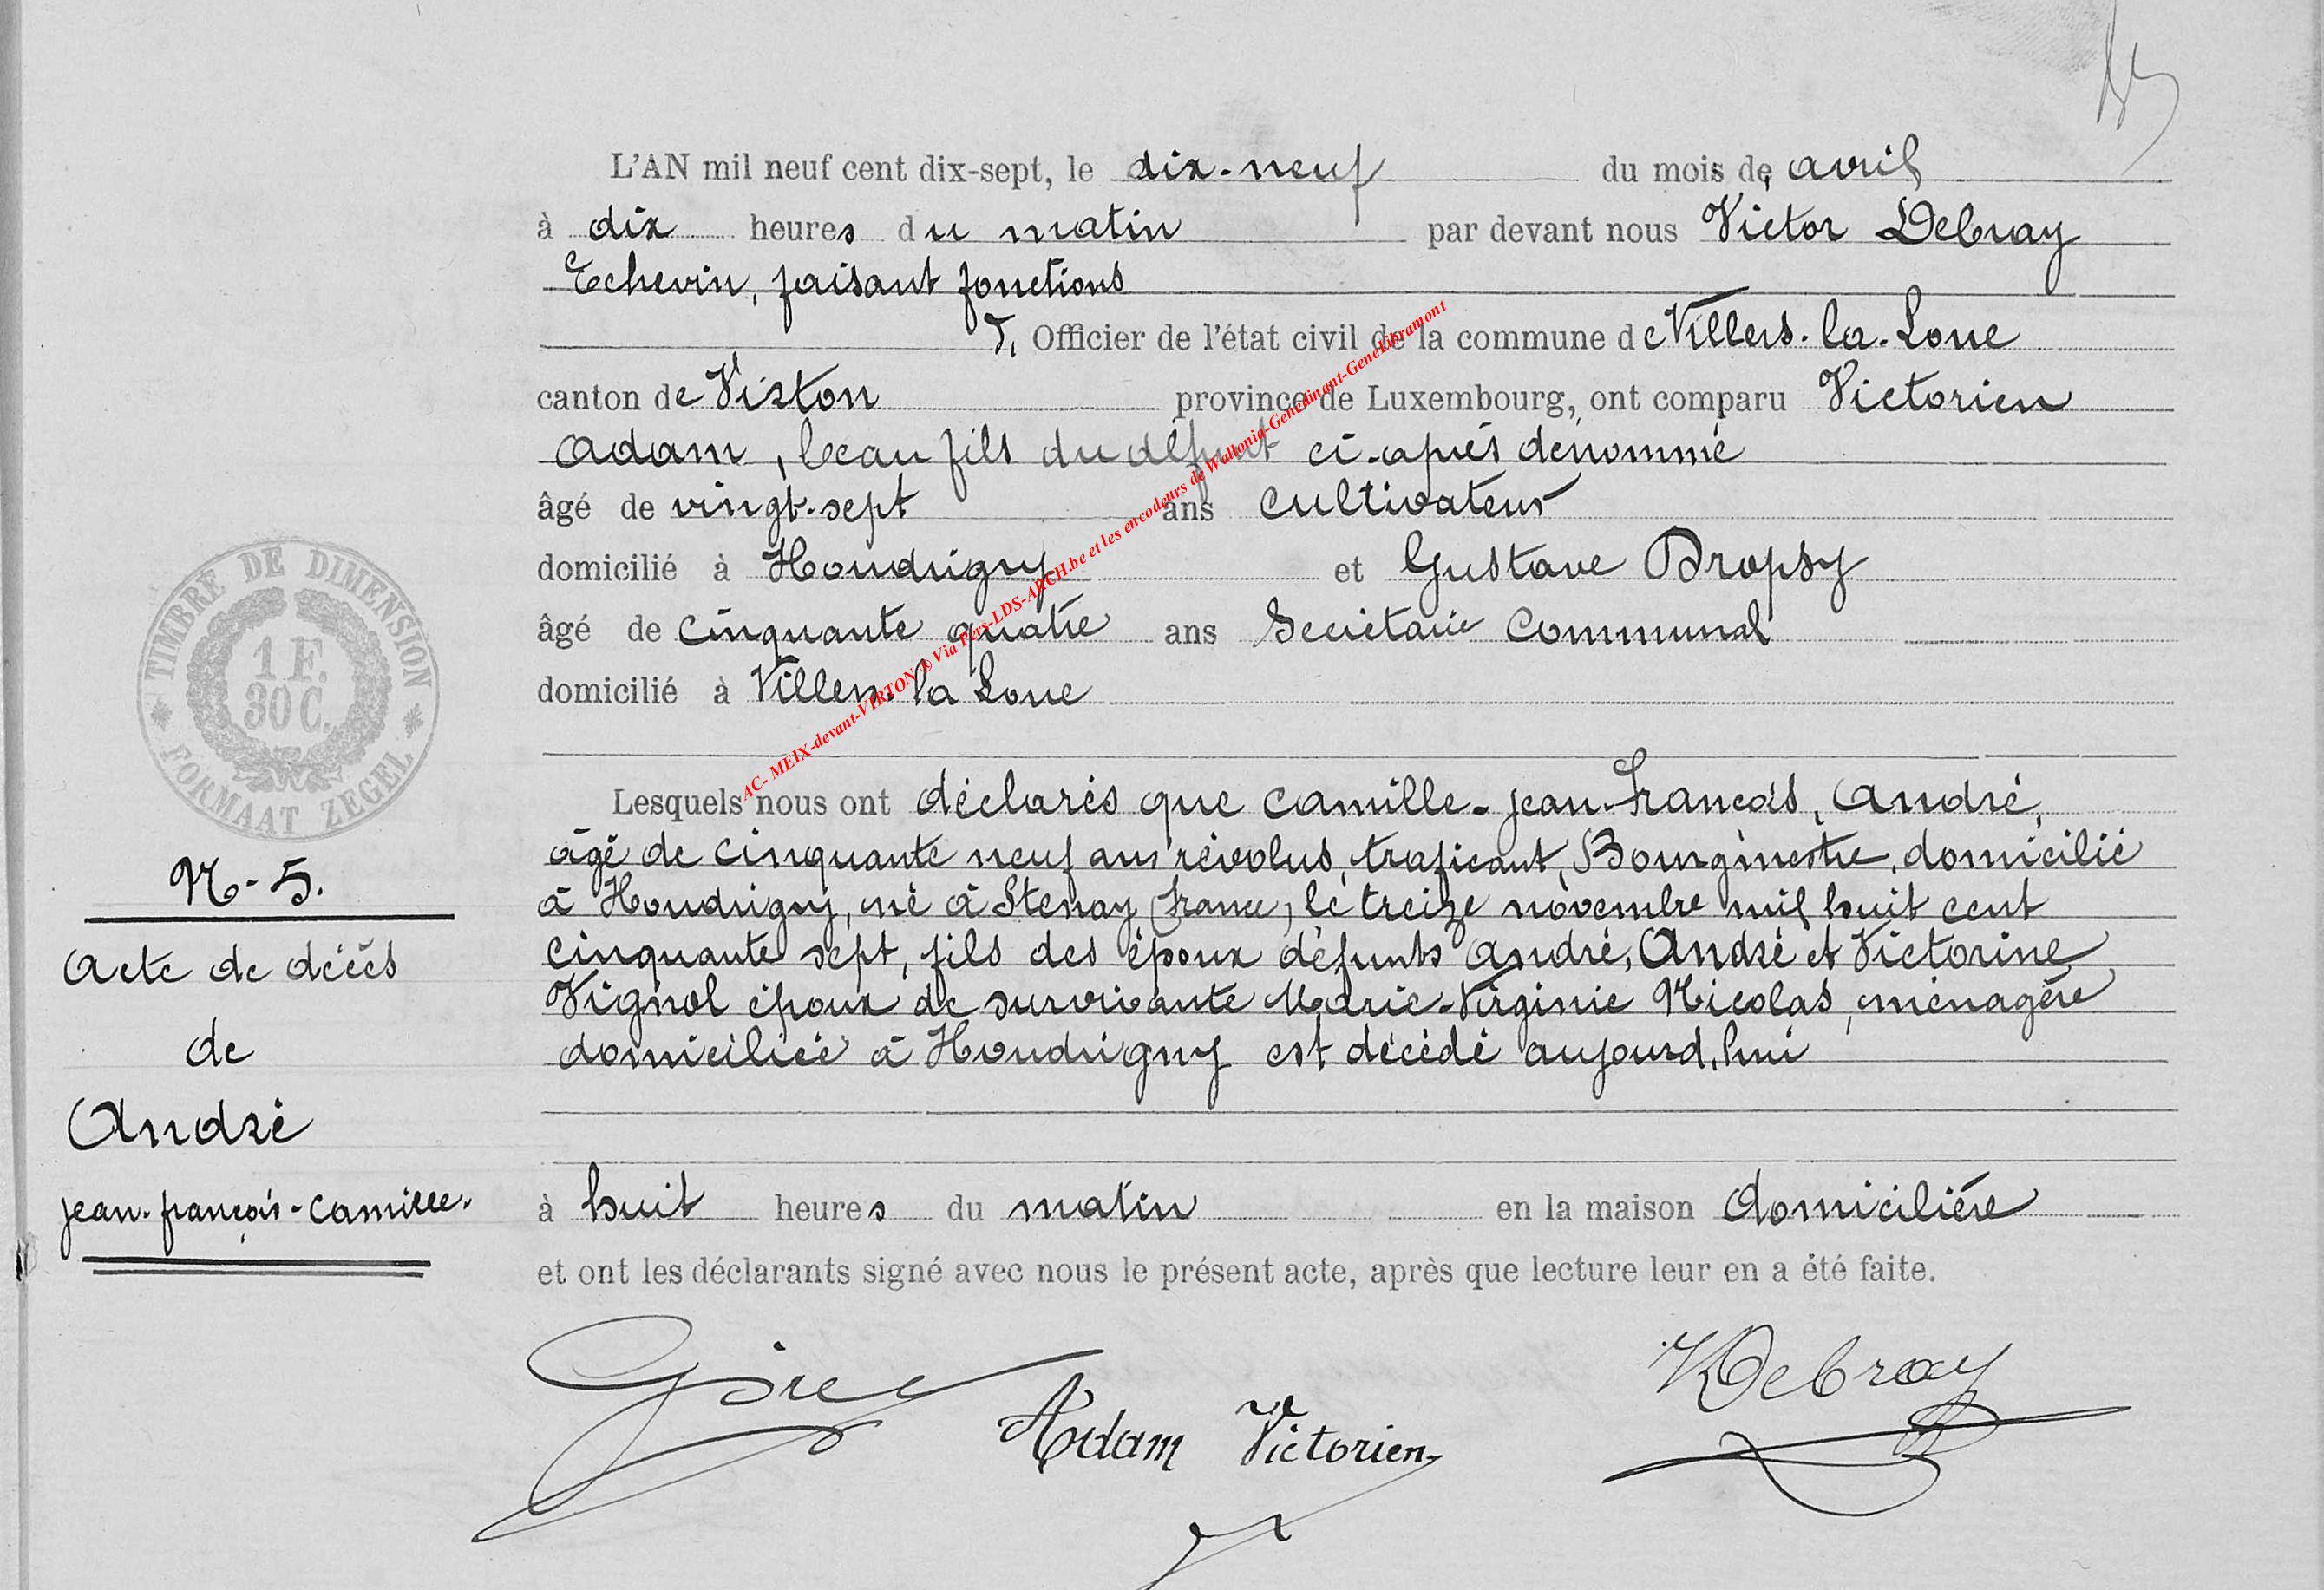 L'AN mil neuf cent dix-sept, le dix-neuf du mois de avril
à dix heures du matin par devant nous Victor Debray
Echevin, faisant fonctions
Officier de l'état civil de la commune de Villers-la-Loue
canton de Virton province de Luxembourg, ont comparu Victorien
Adam, beau fils du défunt ci-après dénommé
âgé de vingt-sept ans cultivateur
domicilié à Houdrigny et Gustave Dropsy
âgé de cinquante quatre ans Secrétaire Communal
domicilié à Villers-la Loue
AC- MEIX-devant-VIRTON ® Via Pers-LDS-ARCH.be et les encodeurs de Wallonia-Genedinant-GeneLibramont
TIMBRE DE DIMENSION
1 F.
30 C.
FORMAAT ZEGEL
N-5.
Acte de décès
de
André
jean-françois-camille.
Lesquels nous ont déclarés que camille-jean-francois, André,
âgé de cinquante neuf ans révolus, traficant, Bourgmestre, domicilié
à Houdrigny, né à Stenay (France) le treize novembre mil huit cent
cinquante sept, fils des époux défunts André, André et Victorine
Vignol époux de survivante Marie-Virginie Nicolas, ménagère
domiciliée à Houdrigny est décédé aujourd,hui
à huit heures du matin en la maison domicilière
et ont les déclarants signé avec nous le présent acte, après que lecture leur en a été faite.
Adam Victorien
VDebray